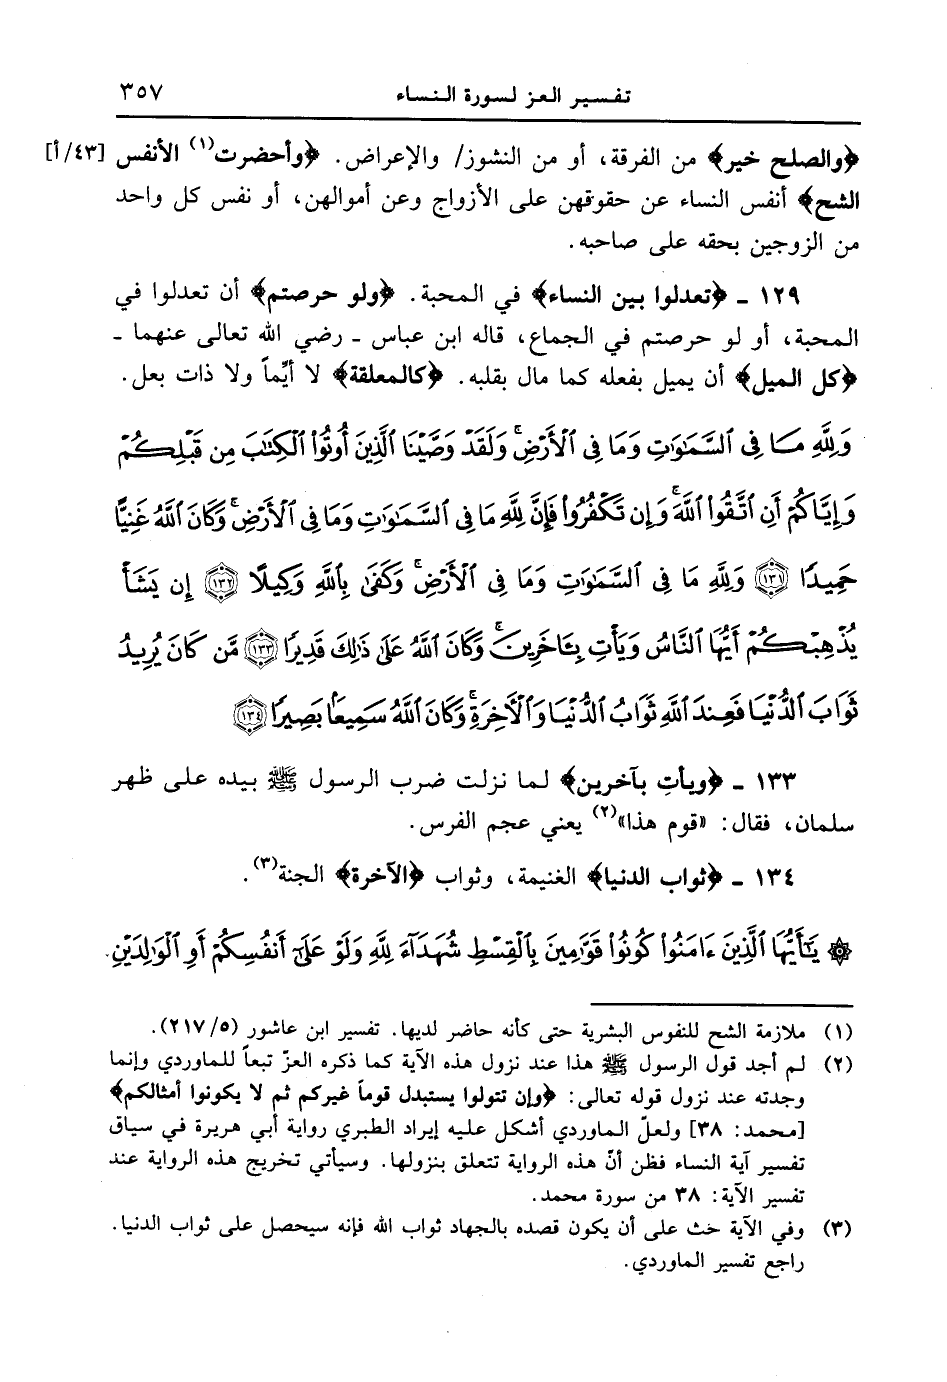 تفسير العز لسورة النساء ٣٥٧
﴿والصلح خير﴾ من الفرقة، أو من النشوز/ والإعراض. ﴿وأحضرت(١) الأنفس [٤٣/أ]
الشح﴾ أنفس النساء عن حقوقهن على الأزواج وعن أموالهن، أو نفس كل واحد
من الزوجين بحقه على صاحبه.
١٢٩ ـ ﴿تعدلوا بين النساء﴾ في المحبة. ﴿ولو حرصتم﴾ أن تعدلوا في
المحبة، أو لو حرصتم في الجماع، قاله ابن عباس ـ رضي الله تعالى عنهما ـ
﴿كل الميل﴾ أن يميل بفعله كما مال بقلبه. ﴿كالمعلقة﴾ لا أيِّماً ولا ذات بعل.
وَلِلَّهِ مَا فِي ٱلسَّمَٰوَٰتِ وَمَا فِي ٱلْأَرْضِۗ وَلَقَدْ وَصَّيْنَا ٱلَّذِينَ أُوتُوا۟ ٱلْكِتَٰبَ مِن قَبْلِكُمْ
وَإِيَّاكُمْ أَنِ ٱتَّقُوا۟ ٱللَّهَۚ وَإِن تَكْفُرُوا۟ فَإِنَّ لِلَّهِ مَا فِي ٱلسَّمَٰوَٰتِ وَمَا فِي ٱلْأَرْضِۚ وَكَانَ ٱللَّهُ غَنِيًّا
حَمِيدًا ١٣١ وَلِلَّهِ مَا فِي ٱلسَّمَٰوَٰتِ وَمَا فِي ٱلْأَرْضِۚ وَكَفَىٰ بِٱللَّهِ وَكِيلًا ١٣٢ إِن يَشَأْ
يُذْهِبْكُمْ أَيُّهَا ٱلنَّاسُ وَيَأْتِ بِـَٔاخَرِينَۚ وَكَانَ ٱللَّهُ عَلَىٰ ذَٰلِكَ قَدِيرًا ١٣٣ مَّن كَانَ يُرِيدُ
ثَوَابَ ٱلدُّنْيَا فَعِندَ ٱللَّهِ ثَوَابُ ٱلدُّنْيَا وَٱلْأَخِرَةِۚ وَكَانَ ٱللَّهُ سَمِيعًۢا بَصِيرًا ١٣٤
١٣٣ ـ ﴿ويأتِ بآخرين﴾ لما نزلت ضرب الرسول ﷺ بيده على ظهر
سلمان، فقال: «قوم هذا»(٢) يعني عجم الفرس.
١٣٤ ـ ﴿ثواب الدنيا﴾ الغنيمة، وثواب ﴿الآخرة﴾ الجنة(٣).
۞ يَٰٓأَيُّهَا ٱلَّذِينَ ءَامَنُوا۟ كُونُوا۟ قَوَّٰمِينَ بِٱلْقِسْطِ شُهَدَآءَ لِلَّهِ وَلَوْ عَلَىٰٓ أَنفُسِكُمْ أَوِ ٱلْوَٰلِدَيْنِ
(١) ملازمة الشح للنفوس البشرية حتى كأنه حاضر لديها. تفسير ابن عاشور (٢١٧/٥).
(٢) لم أجد قول الرسول ﷺ هذا عند نزول هذه الآية كما ذكره العزّ تبعاً للماوردي وإنما
وجدته عند نزول قوله تعالى: ﴿وإن تتولوا يستبدل قوماً غيركم ثم لا يكونوا أمثالكم﴾
[محمد: ٣٨] ولعلّ الماوردي أشكل عليه إيراد الطبري رواية أبي هريرة في سياق
تفسير آية النساء فظن أنّ هذه الرواية تتعلق بنزولها. وسيأتي تخريج هذه الرواية عند
تفسير الآية: ٣٨ من سورة محمد.
(٣) وفي الآية حث على أن يكون قصده بالجهاد ثواب الله فإنه سيحصل على ثواب الدنيا.
راجع تفسير الماوردي.